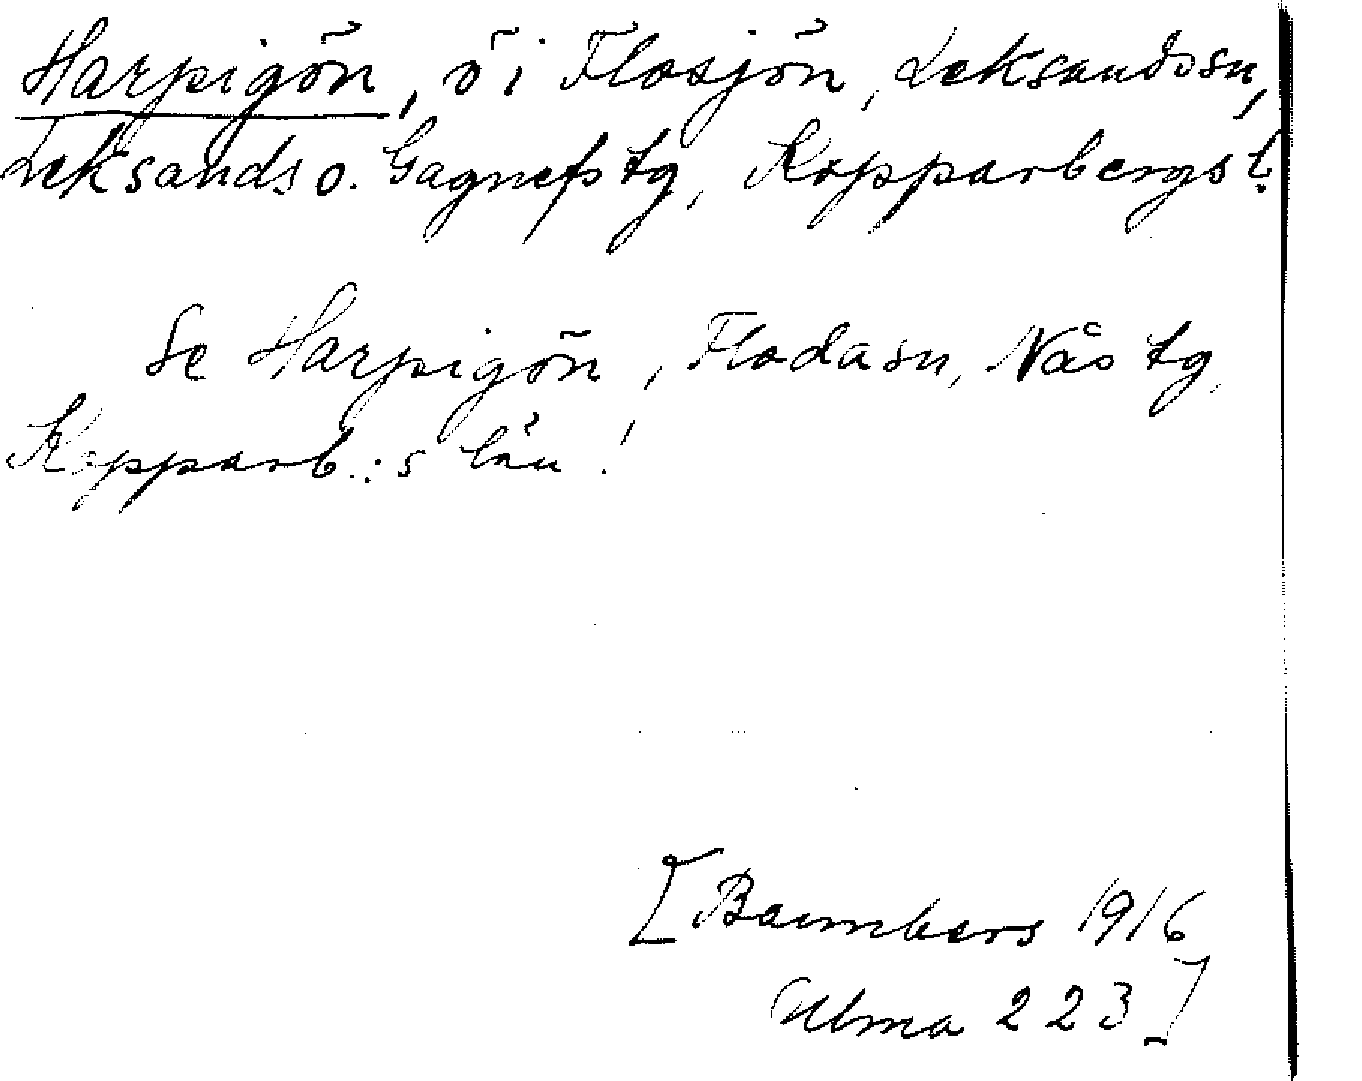 Harpigön, ö i Flosjön, Leksands sn,
Leksands o. Gagnefs tg, Kopparbergs l.
Se Harpigön, Floda sn, Nås tg,
Kopparb.:s län!
[ 1916
Ulma 223]